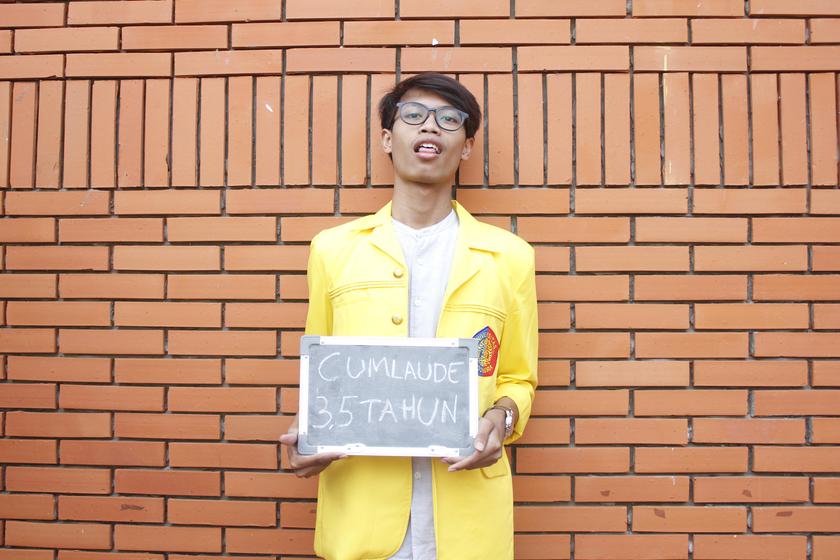 CUMLAUDE
3,5 TAHUN